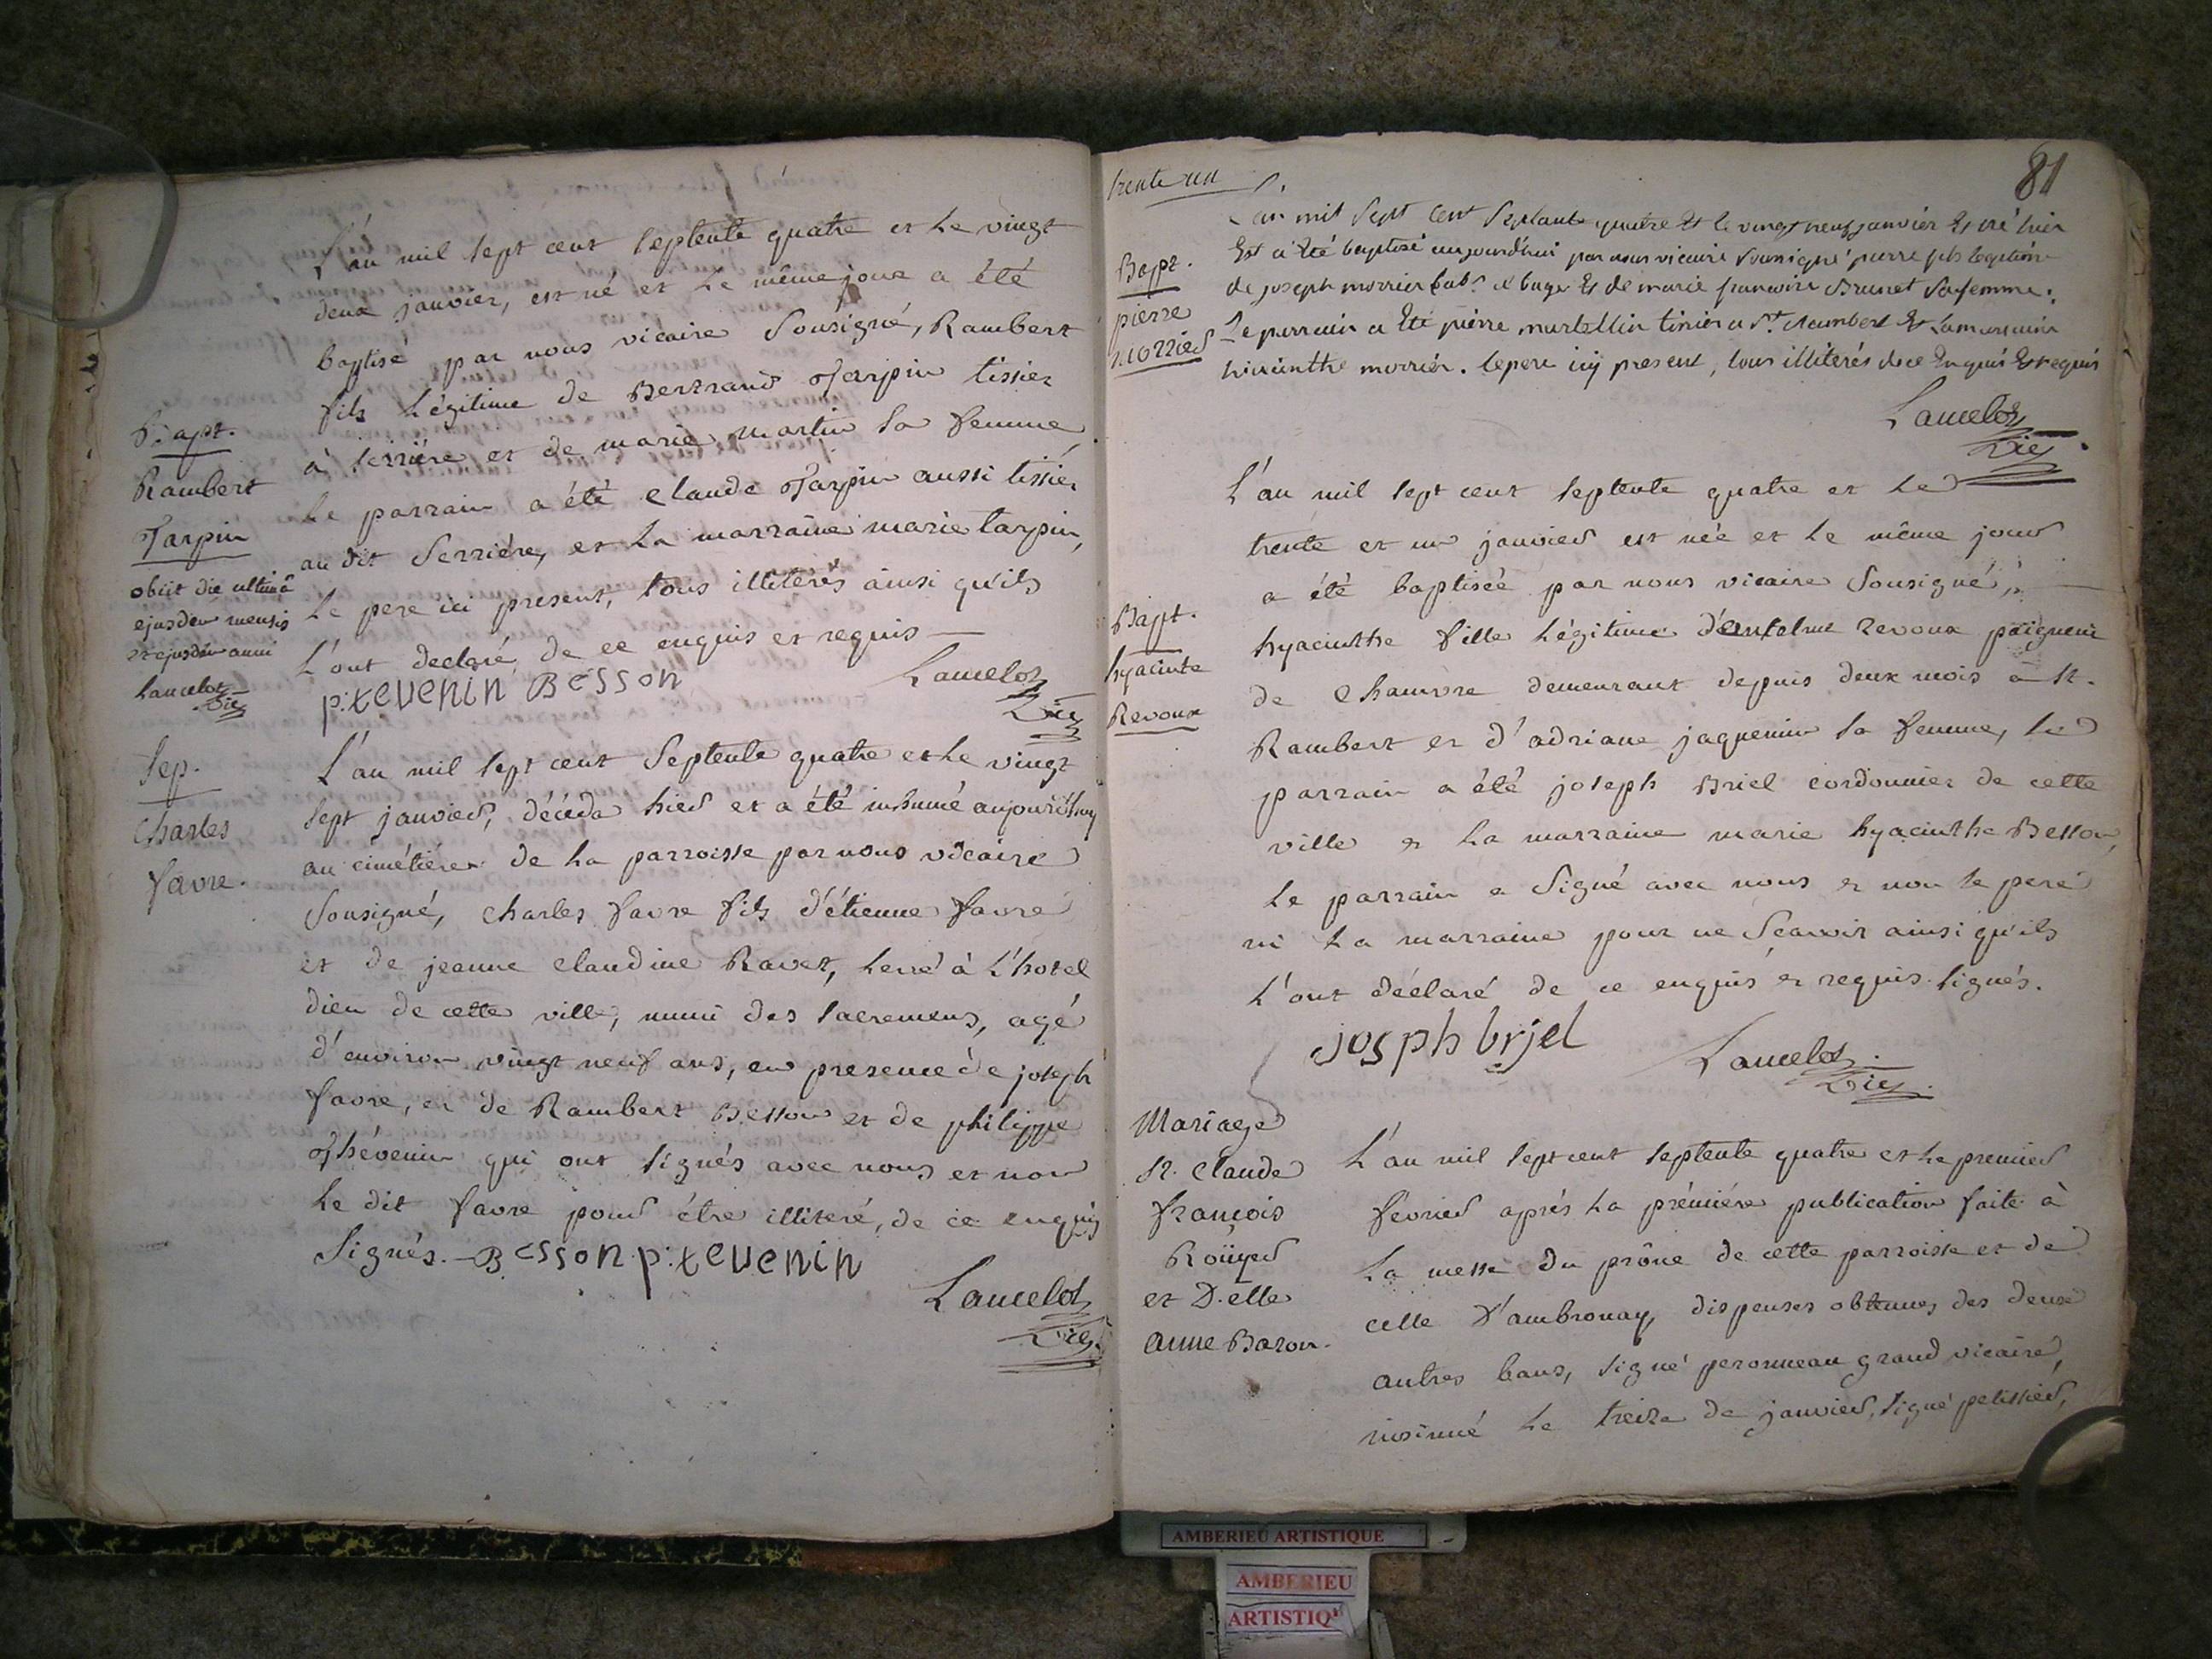 L'an mil sept cent septente quatre et le vingt
deux janvier, est né et le même jour a été
baptisé par nous vicaire sousigné, Rambert
fils légitime de Bertrand Tarpin tissier
à serriére et de marie martin sa femme,
le parrain a été claude Tarpin aussi tissier
au dit serriére, et la marraine marie tarpin,
le pere ici present, tous illiterés ainsi qu'ils
l'ont declaré, de ce enquis et requis
p: tevenin Besson Lancelot
Vic
Bapt.
Rambert
Tarpin
obiit die ultimâ
ejusdem mensis
et ejusdem anni
Lancelot
Vic
Sep.
Charles
favre.
L'an mil sept cent septente quatre et le vingt
sept janvier, décéda hier et a été inhumé aujourd'huy
au cimétiére de la parroisse par nous vicaire
sousigné, charles favre fils d'étienne favre
et de jeanne claudine Ravet, à l'hotel
dieu de cette ville, muni des sacremens, agé
d'environ vingt neuf ans, en presence de joseph
favre, et de Rambert Besson et de philippe
Thévenin qui ont signés avec nous et non
le dit favre pour être illiteré, de ce enquis
signés. Besson p: tevenin
Lancelot
Vic
trente un
81
L'an mil sept cent septante quatre Et le vingt neuf janvier Est né hier
Est a Eté baptisé aujourd'hui par nous vicaire soussigné pierre fils legitime
de joseph morrier hab. Et de marie francoise Brunet sa femme.
Le parrain a Eté pierre martellin a St. Rambert Et la marraine
hiacinthe morrier. le pere icy present, tous illiterés de ce Enquis Et requis
Lancelot
Vic
Bapt.
pierre
morrier
L'an mil sept cent septente quatre et le
trente et un janvier est née et le même jour
a été baptisée par nous vicaire sousigné,
hyacinthe fille légitime d'antelme revoux
de demeurant depuis deux mois à st.
Rambert et d'adriane jaquemin sa femme, le
parrain a été joseph Briel cordonnier de cette
ville et la marraine marie hyacinthe Besson,
le parrain a signé avec nous et non le pere
ni la marraine pour ne sçavoir ainsi qu'ils
l'ont déclaré de ce enquis et requis signés.
josph brjel Lancelot
Vic
Bapt.
hyacinte
Revoux
Mariage
Sr. Claude
françois
Roüyer
et D.elle
Anne Baron.
L'an mil sept cent septente quatre et le premier
février aprés la prémiére publication faite à
la messe du prône de cette parroisse et de
celle d'ambronay, dispenses obtenues des deux
autres bans, signé peronneau grand vicaire,
insinué le treize de janvier, signé pelissier,
AMBERIEU ARTISTIQUE
AMBERIEU
ARTISTIQ